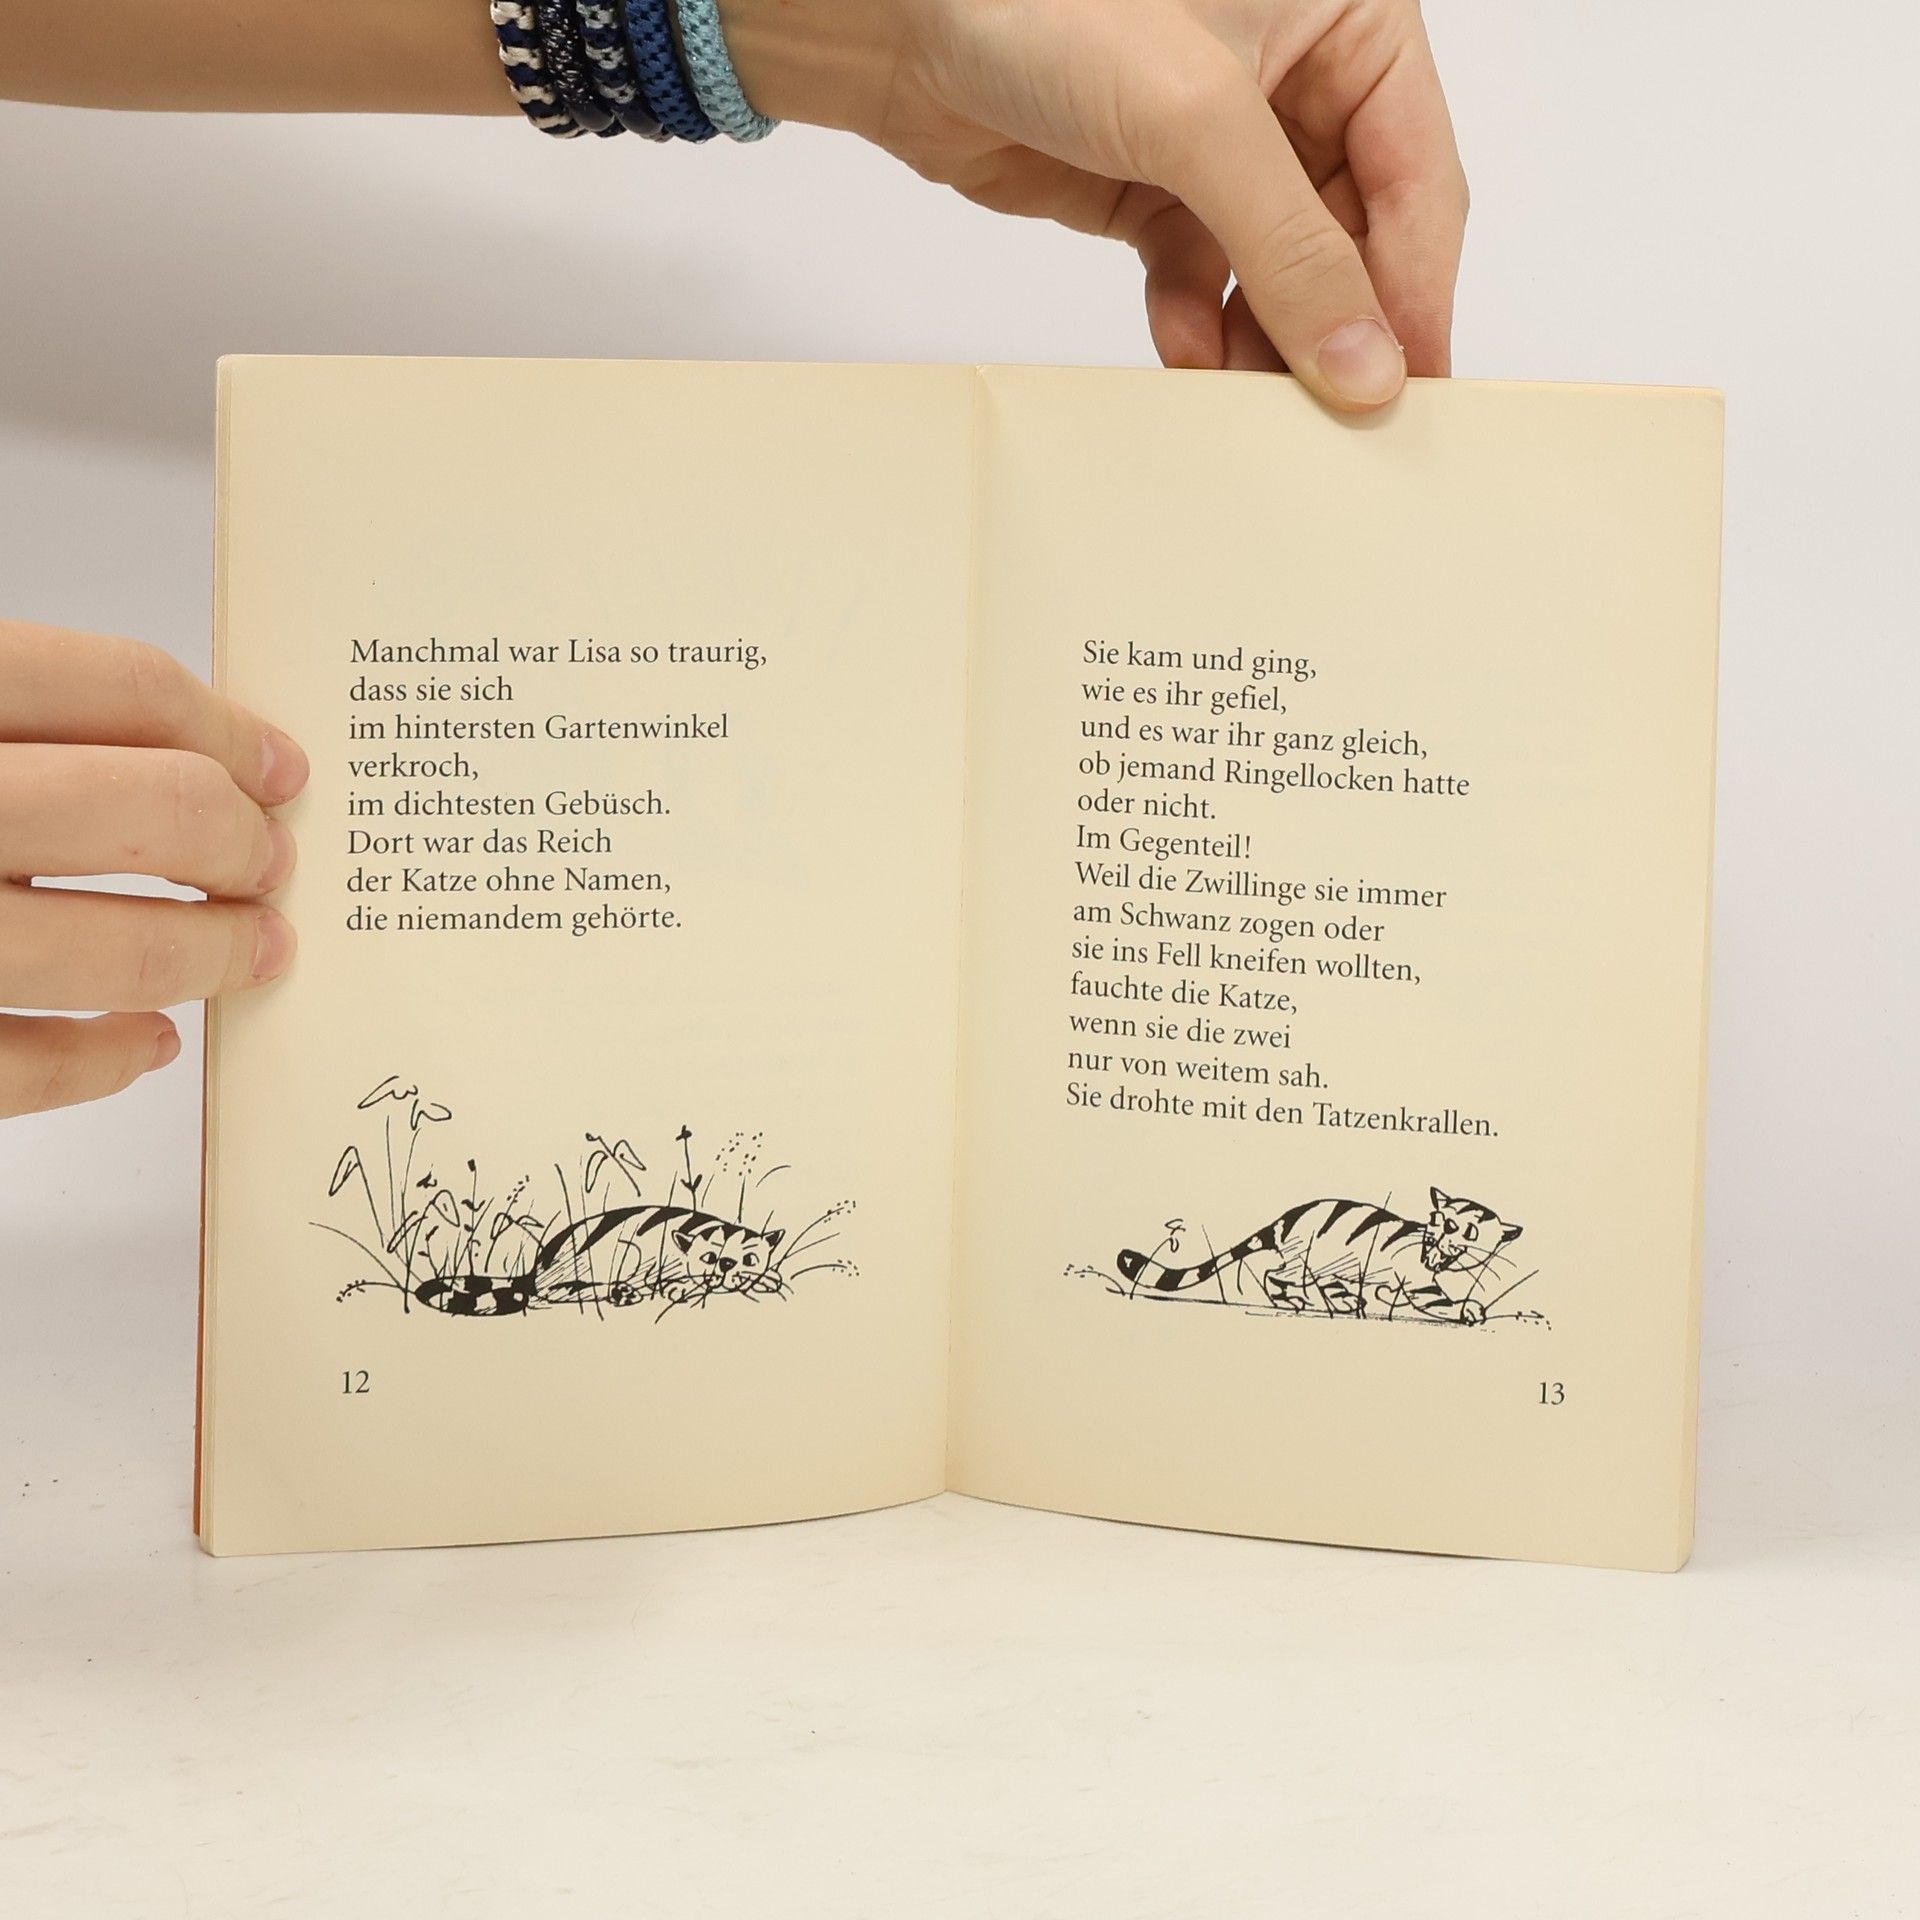 Manchmal war Lisa so traurig,
dass sie sich
im hintersten Gartenwinkel
verkroch,
im dichtesten Gebüsch.
Dort war das Reich
der Katze ohne Namen,
die niemandem gehörte.
12
Sie kam und ging,
wie es ihr gefiel,
und es war ihr ganz gleich,
ob jemand Ringellocken hatte
oder nicht.
Im Gegenteil!
Weil die Zwillinge sie immer
am Schwanz zogen oder
sie ins Fell kneifen wollten,
fauchte die Katze,
wenn sie die zwei
nur von weitem sah.
Sie drohte mit den Tatzenkrallen.
13